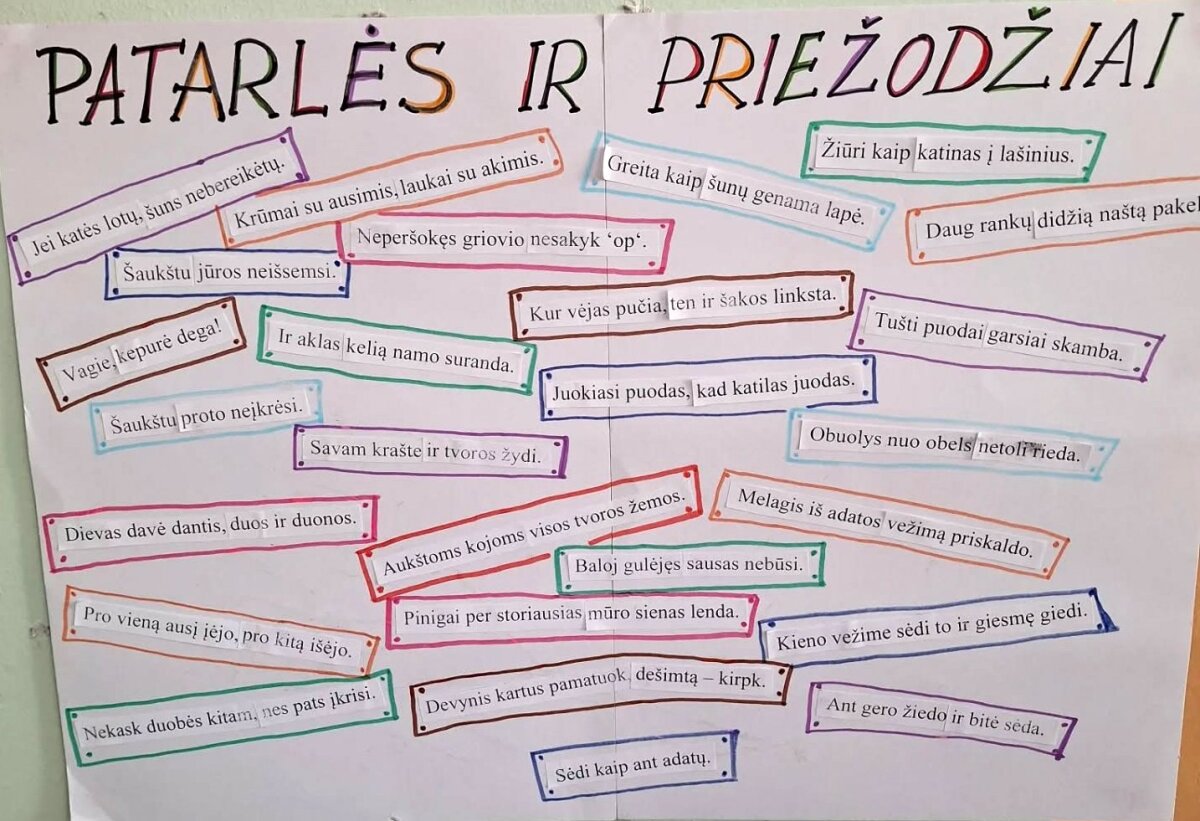 PATARLĖS IR PRIEŽODŽIAI
Jei katės lotų, šuns nebereikėtų.
Krūmai su ausimis, laukai su akimis.
Greita kaip šunų genama lapė.
Žiūri kaip katinas į lašinius.
Daug rankų didžią naštą pakel
Neperšokęs griovio nesakyk ‘op‘.
Šaukštu jūros neišsemsi.
Kur vėjas pučia, ten ir šakos linksta.
Tušti puodai garsiai skamba.
Vagie, kepurė dega!
Ir aklas kelią namo suranda.
Juokiasi puodas, kad katilas juodas.
Šaukštu proto neįkrėsi.
Savam krašte ir tvoros žydi.
Obuolys nuo obels netoli rieda.
Dievas davė dantis, duos ir duonos.
Aukštoms kojoms visos tvoros žemos.
Melagis iš adatos vežimą priskaldo.
Baloj gulėjęs sausas nebūsi.
Pro vieną ausį įėjo, pro kitą išėjo.
Pinigai per storiausias mūro sienas lenda.
Kieno vežime sėdi to ir giesmę giedi.
Nekask duobės kitam, nes pats įkrisi.
Devynis kartus pamatuok, dešimtą – kirpk.
Ant gero žiedo ir bitė sėda.
Sėdi kaip ant adatų.